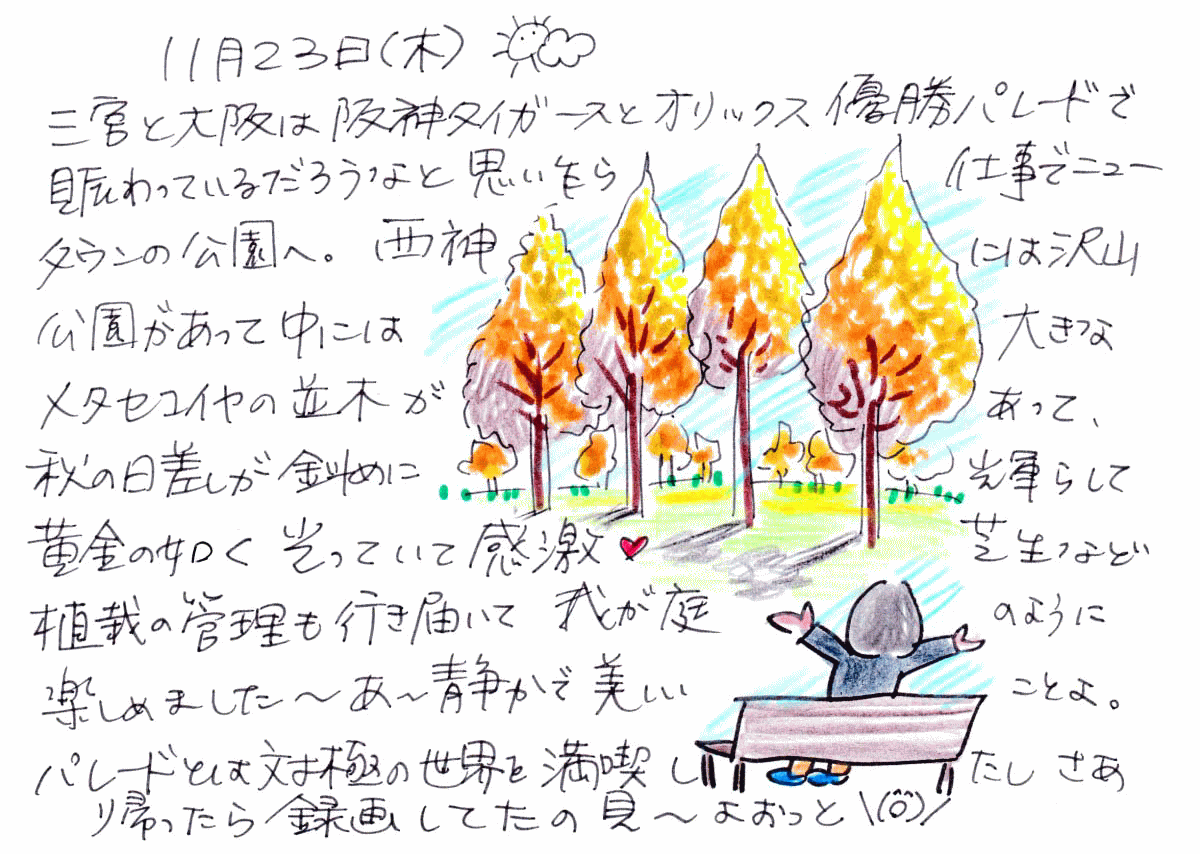 11月23日(木)
三宮と大阪は阪神タイガースとオリックス優勝パレードで
賑わっているだろうなと思いながら 仕事でニュー
タウンの公園へ。西神 には沢山
公園があって中には 大きな
メタセコイヤの並木が あって、
秋の日差しが斜めに 光輝らして
黄金の如く光っていて感激 芝生など
植栽の管理も行き届いて我が庭 のように
楽しめました〜あ〜静かで美しい ことよ。
パレードとは対極の世界を満喫し たし さあ
帰ったら録画してたの見〜よおっと \(^o^)/